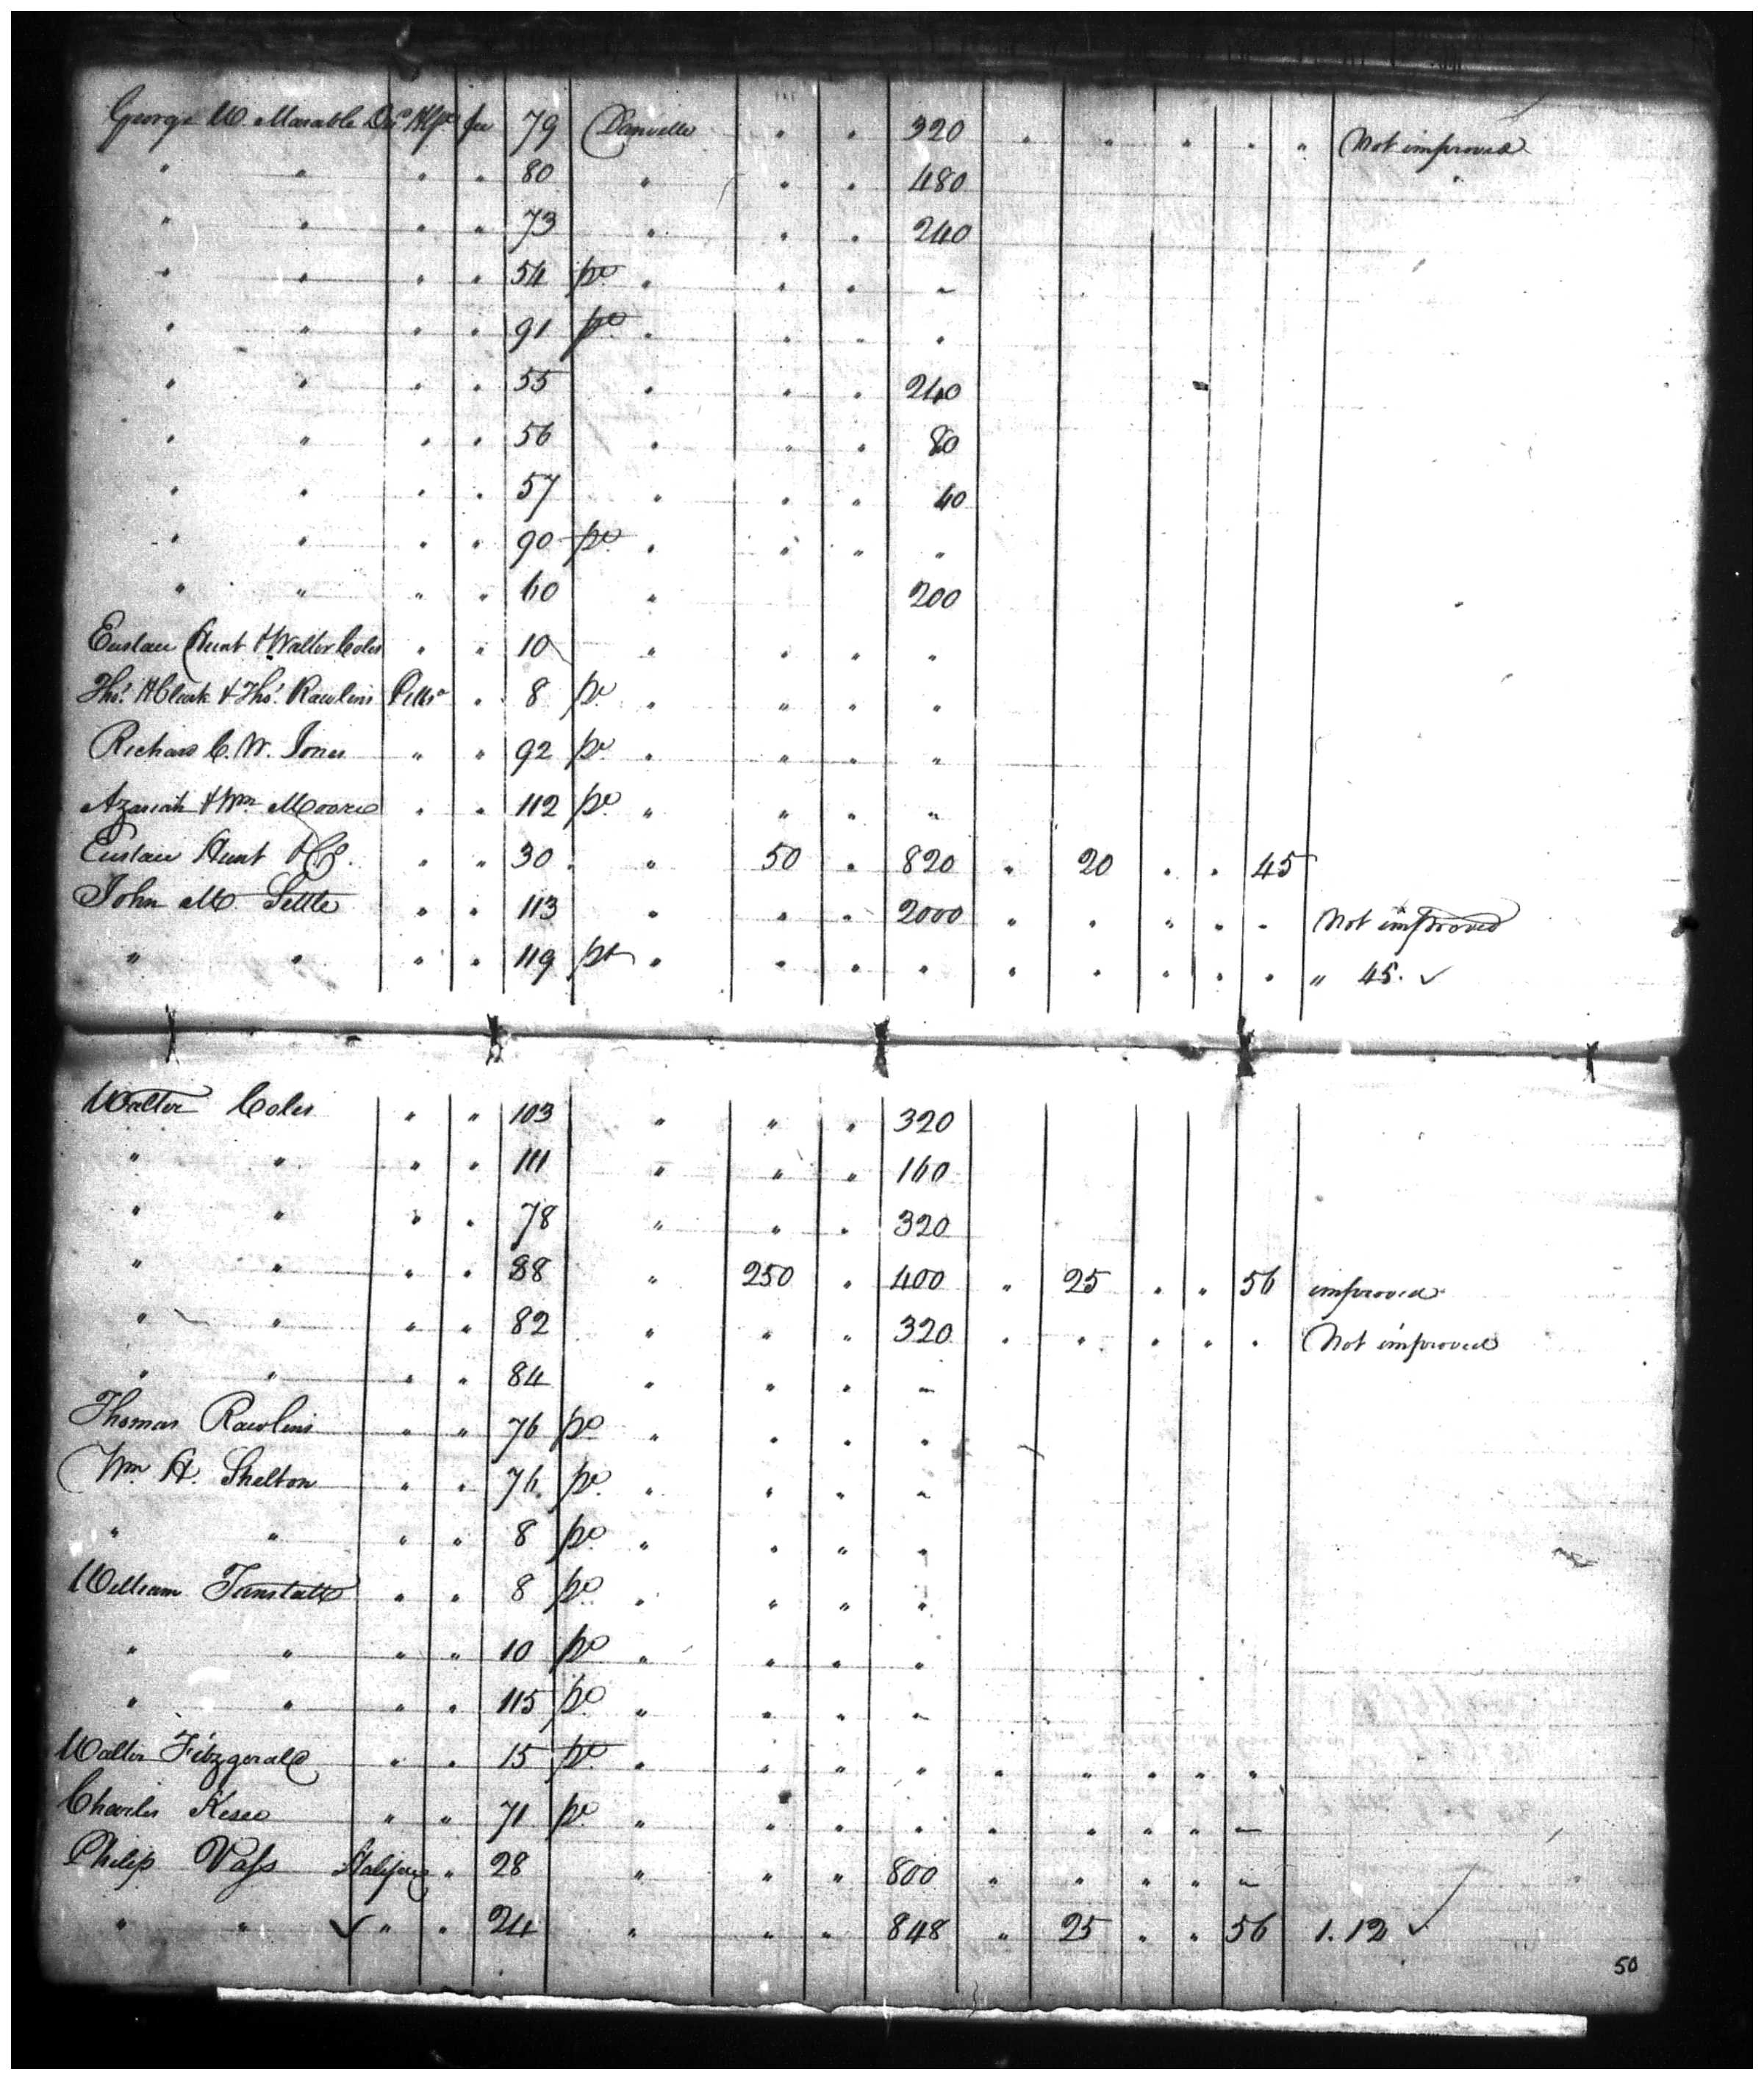 George W. Marable Dec'd Hfx fee 79 Danville " " 320 " " " " " Not improved
" " " " 80 " " " 480
" " " " 73 " " " 240
" " " " 54 pt. " " " "
" " " " 91 pt. " " " "
" " " " 55 " " " 240
" " " " 56 " " " 80
" " " " 57 " " " 40
" " " " 90 pt. " " " "
" " " " 60 " 200
Eustace Hunt & Walter Coles " " 10 " " " "
Thos. H Clark & Thos. Rawlins Pitts " 8 pt. " " " "
Richard C. W. Jones " " 92 pt. " " " "
Azariah & Wm. Moore " " 112 pt. " " " "
Eustace Hunt & Co. " " 30 " 50 " 820 " 20 " " 45
John M Settle " " 113 " " " 2000 " " " " " Not improved
" " " " 119 pt " " " " " " " " " " 45. ✓
Walter Coles " " 103 " " " 320
" " " " 111 " " " 160
" " " " 78 " " " 320
" " " " 88 " 250 " 400 " 25 " " 56 improved
" " " " 82 " " " 320 " " " " " Not improved
" " " " 84 " " " "
Thomas Rawlins " " 76 pt. " " " "
Wm. H. Shelton " " 76 pt. " " " "
" " " " 8 pt. " " " "
William Tunstall " " 8 pt. " " " "
" " " " 10 pt. " " " "
" " " " 115 pt. " " " "
Walter Fitzgerald " " 15 pt. " " " " " " " " "
Charles Kesee " " 71 pt. " " " " " " " " "
Philip Vass Halifax " 28 " " " 800 " " " " "
" " ✓ " " 24 " " " 848 " 25 " " 56 1.12 ✓
50